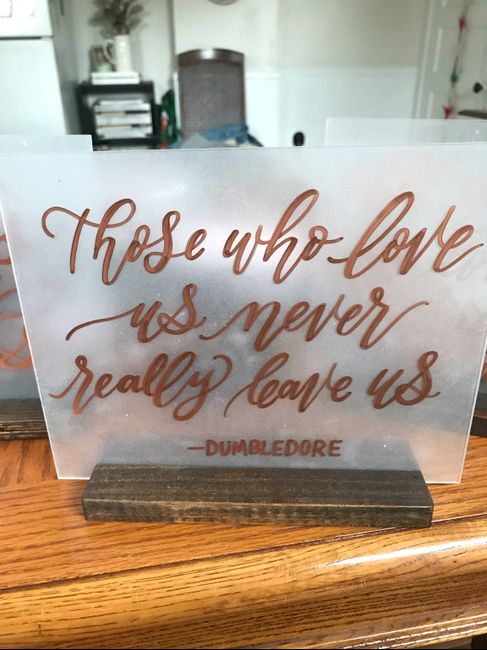 Those who love
us never
really leave us
—DUMBLEDORE